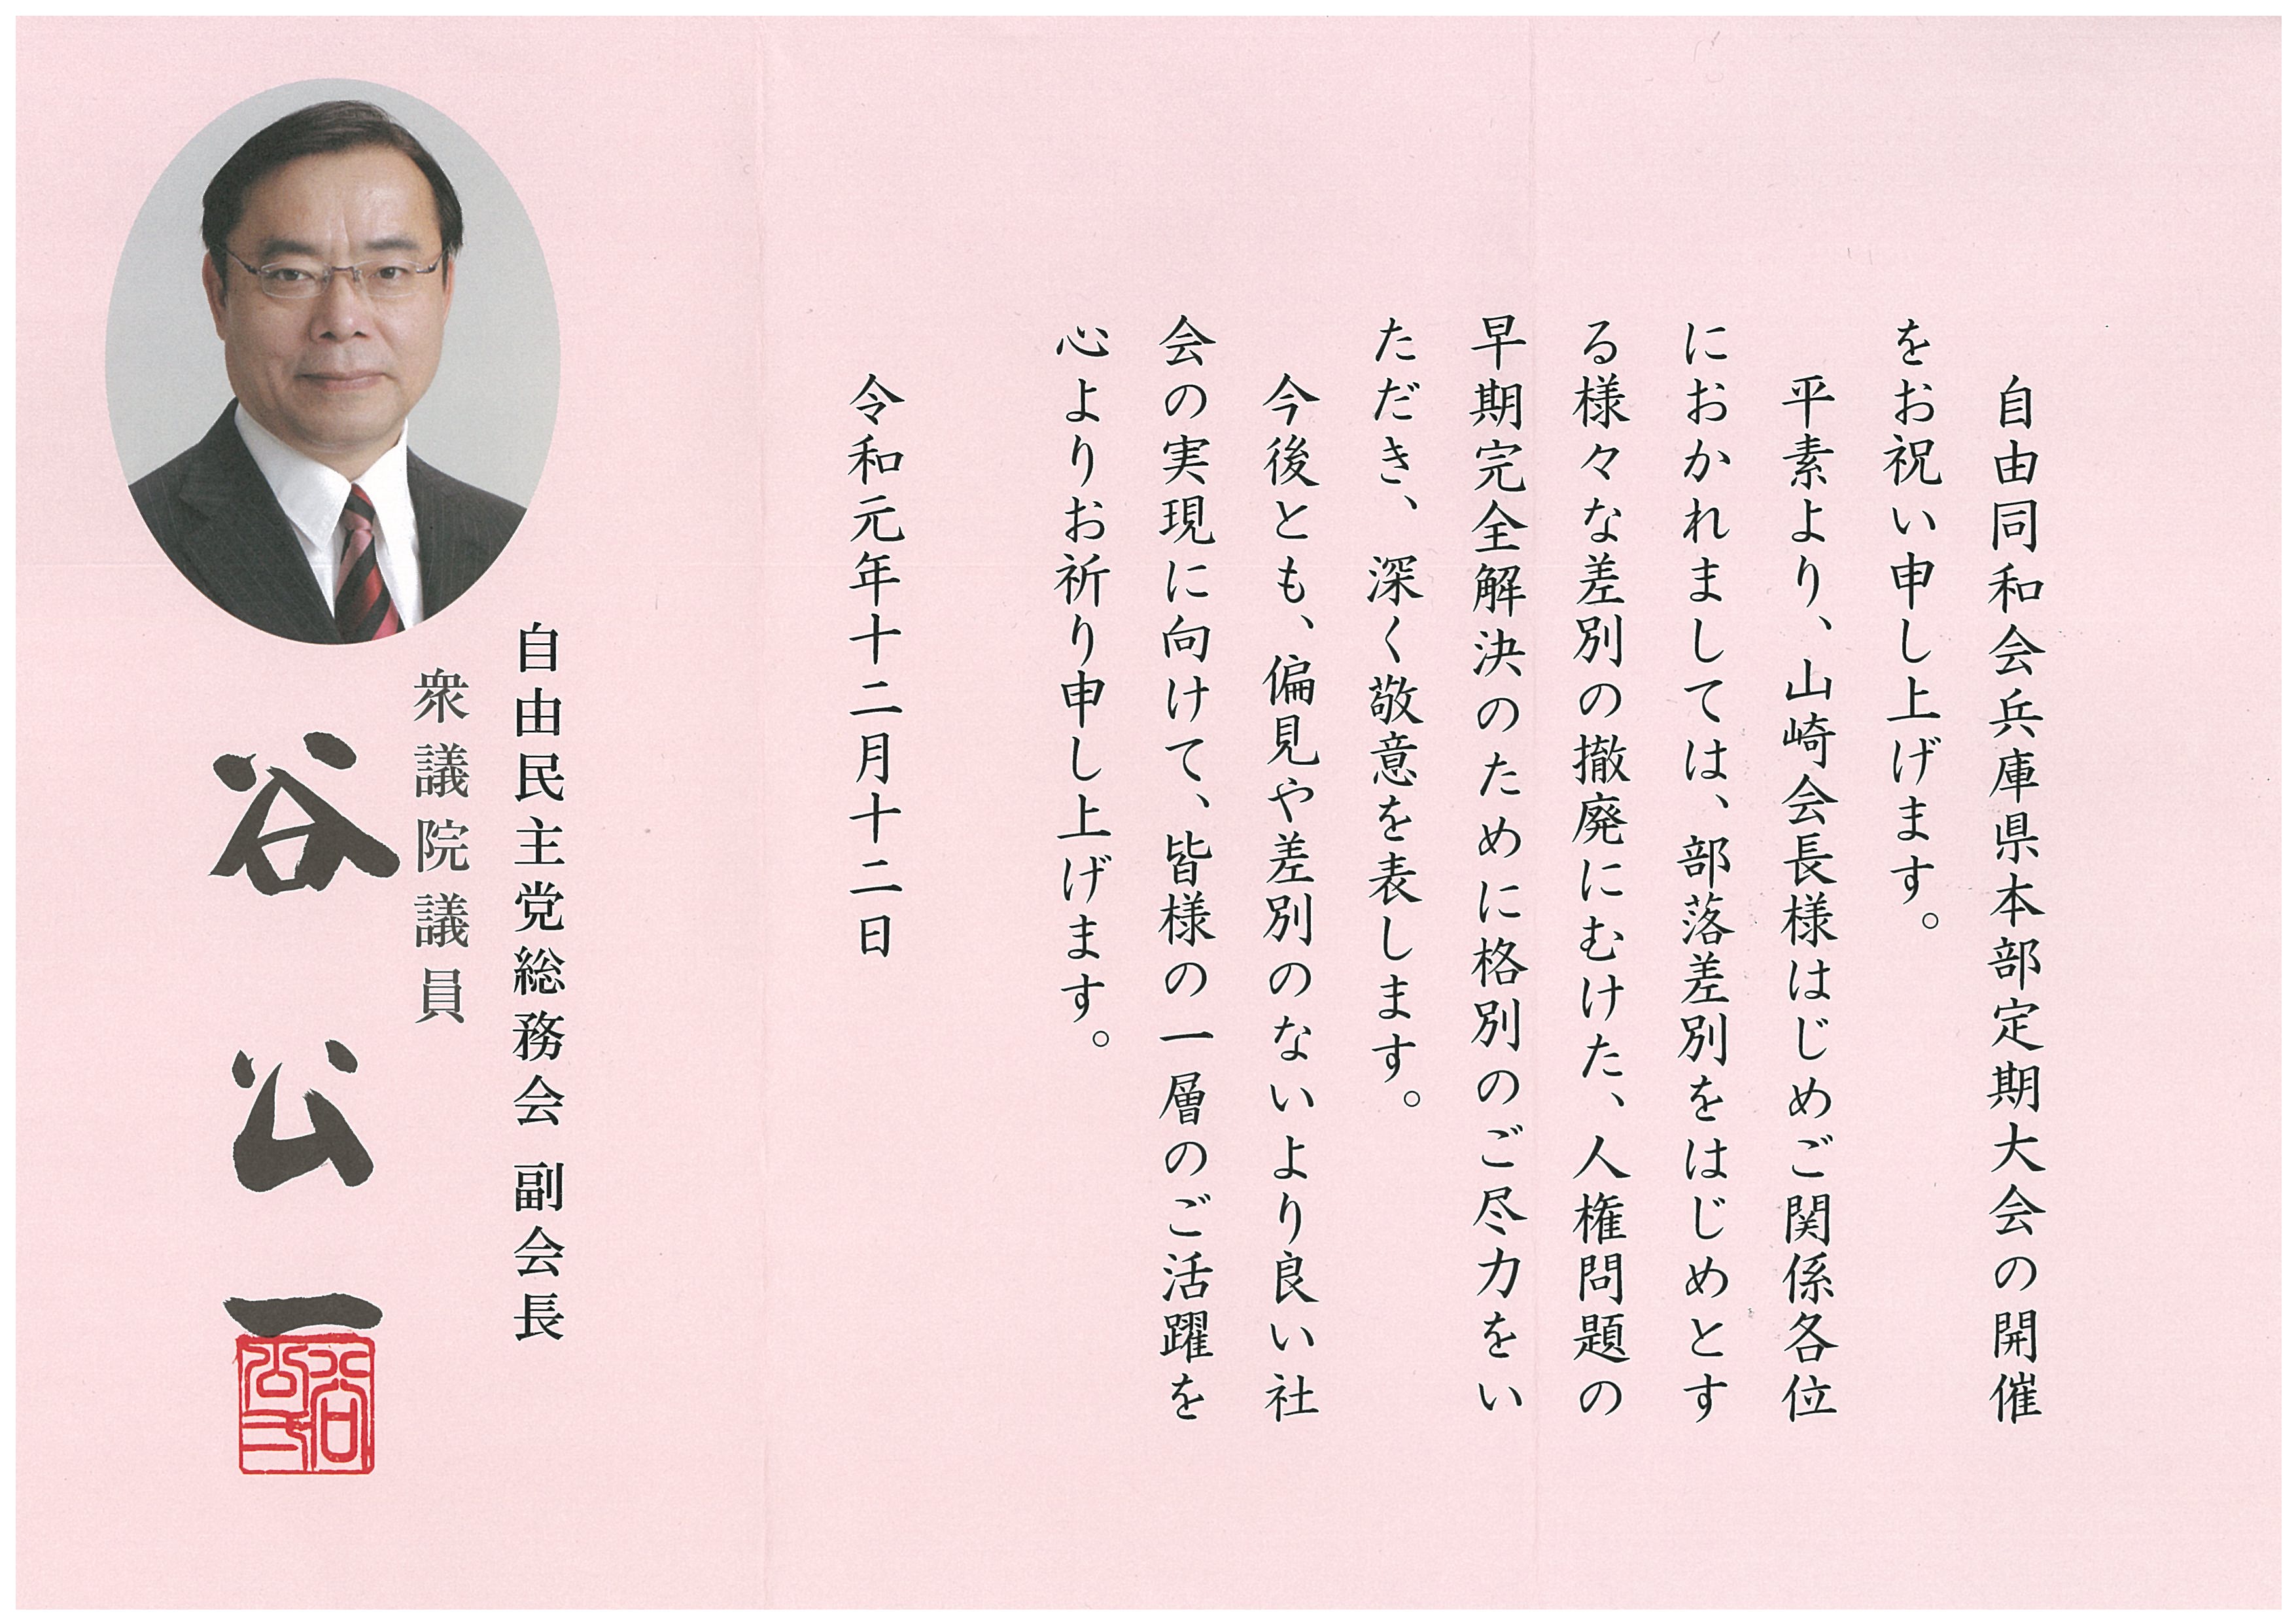 自由同和会兵庫県本部定期大会の開催
をお祝い申し上げます。
平素より、山崎会長様はじめご関係各位
におかれましては、部落差別をはじめとす
る様々な差別の撤廃にむけた、人権問題の
早期完全解決のために格別のご尽力をい
ただき、深く敬意を表します。
今後とも、偏見や差別のないより良い社
会の実現に向けて、皆様の一層のご活躍を
心よりお祈り申し上げます。
令和元年十二月十二日
自由民主党総務会 副会長
衆議院議員
谷公一
谷公一